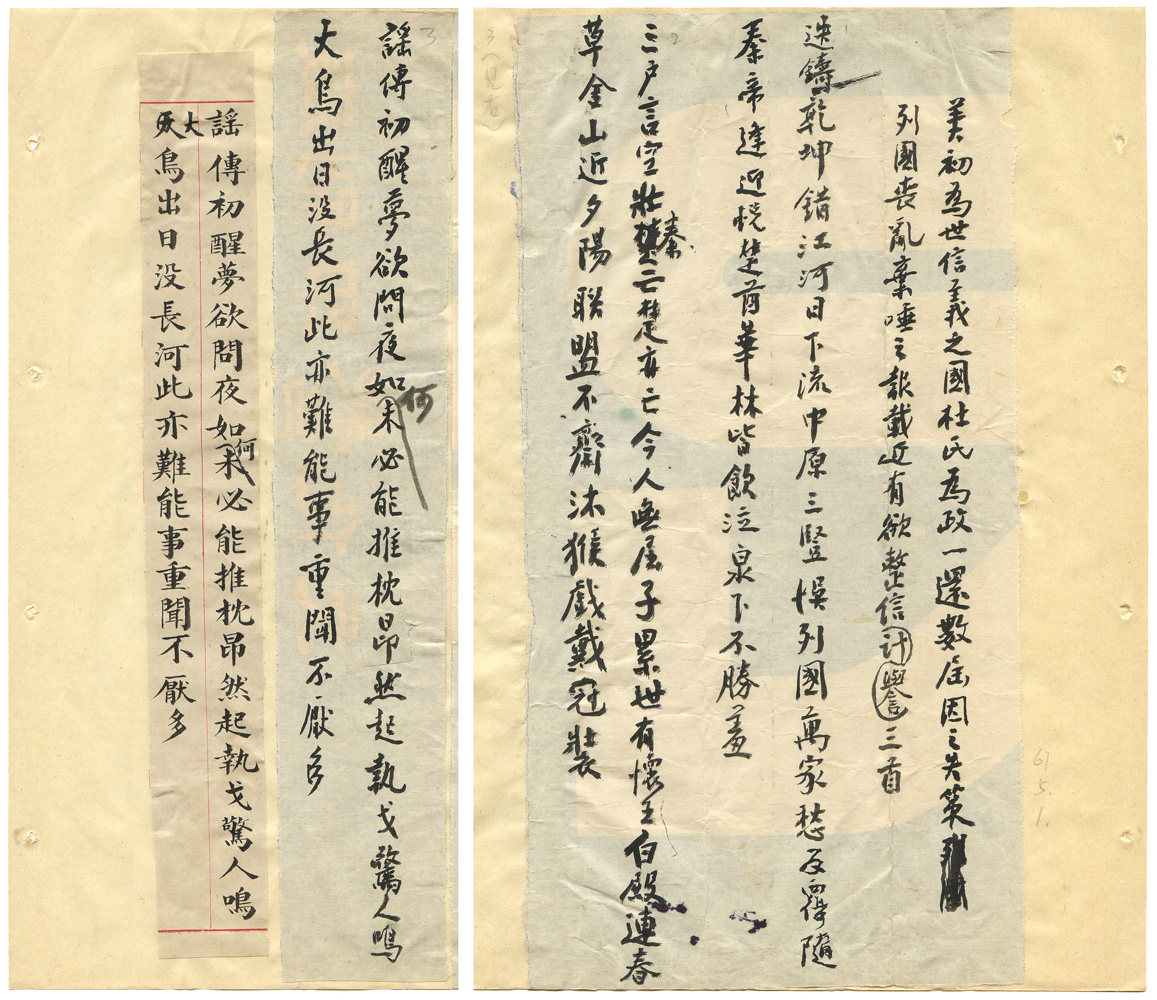 美初為世信義之國杜氏為政一還數屆因之失策
列國喪亂棄唾之報載近有欲整信計譽三首
迭鑄乾坤錯江河日下流中原三豎悞列國萬家愁反覆隨
秦帝逢迎悅楚酋華林皆飲泣泉下不勝羞
三户言空壯秦亡楚亦亡今人無屈子累世有懷王白殿連春
草金山近夕陽聯盟不齋沐猴戲戴冠裝
61.5.1.
3
謡傳初醒夢欲問夜如何未必能推枕昂然起執戈驚人鳴
大鳥出日没長河此亦難能事重聞不厭多
謡傳初醒夢欲問夜如何未必能推枕昂然起執戈驚人鳴
大鳥出日没長河此亦難能事重聞不厭多